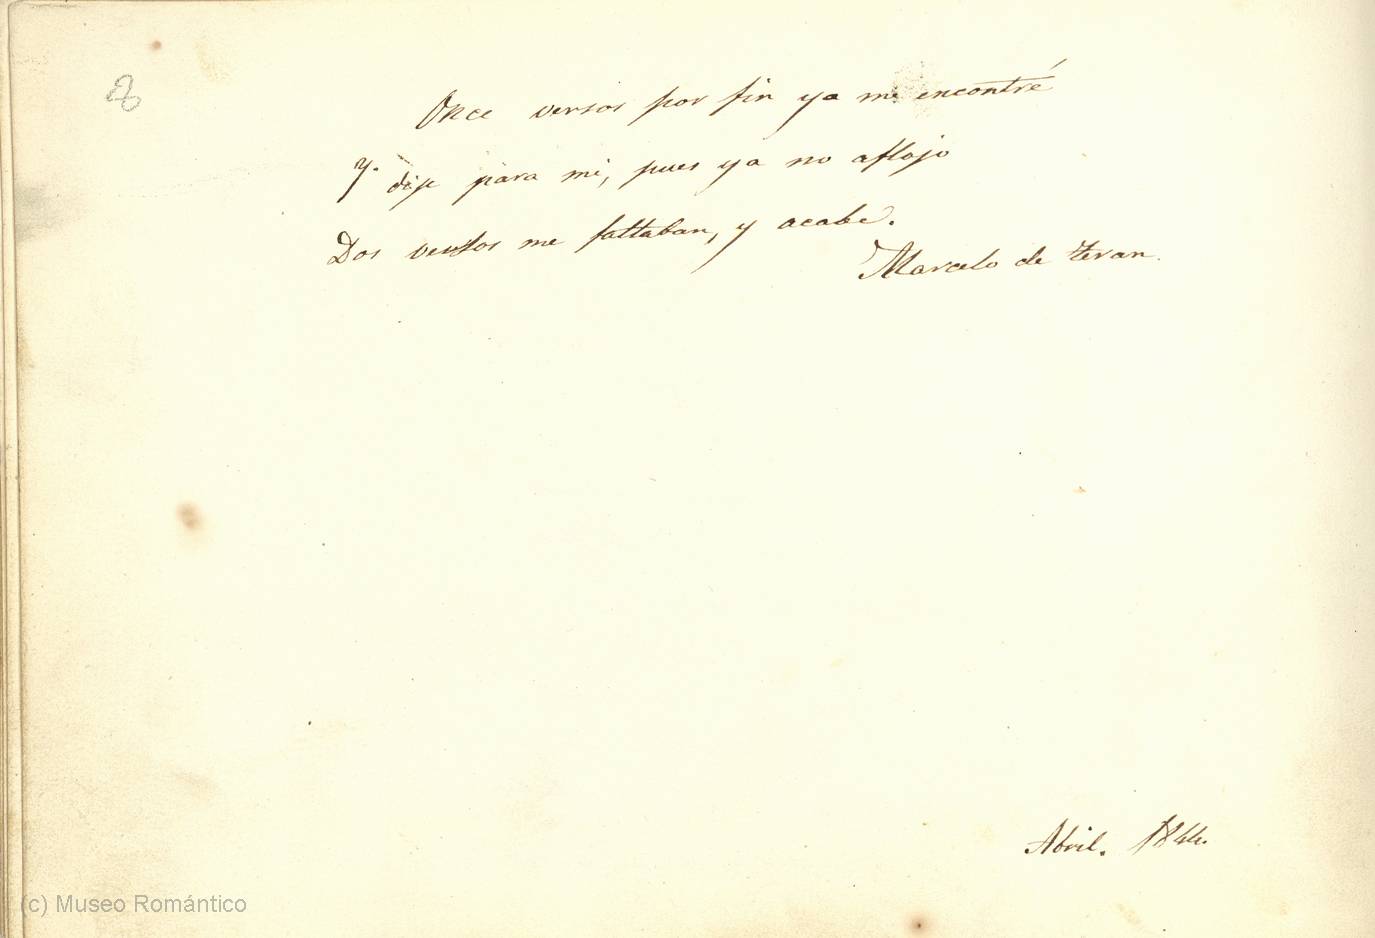 8
Once versos por fin ya me encontré
y dije para mi, pues ya no aflojo
Dos versos me faltaban, y acabé.
Marcelo de Teran.
Abril. 1844.
(c) Museo Romántico